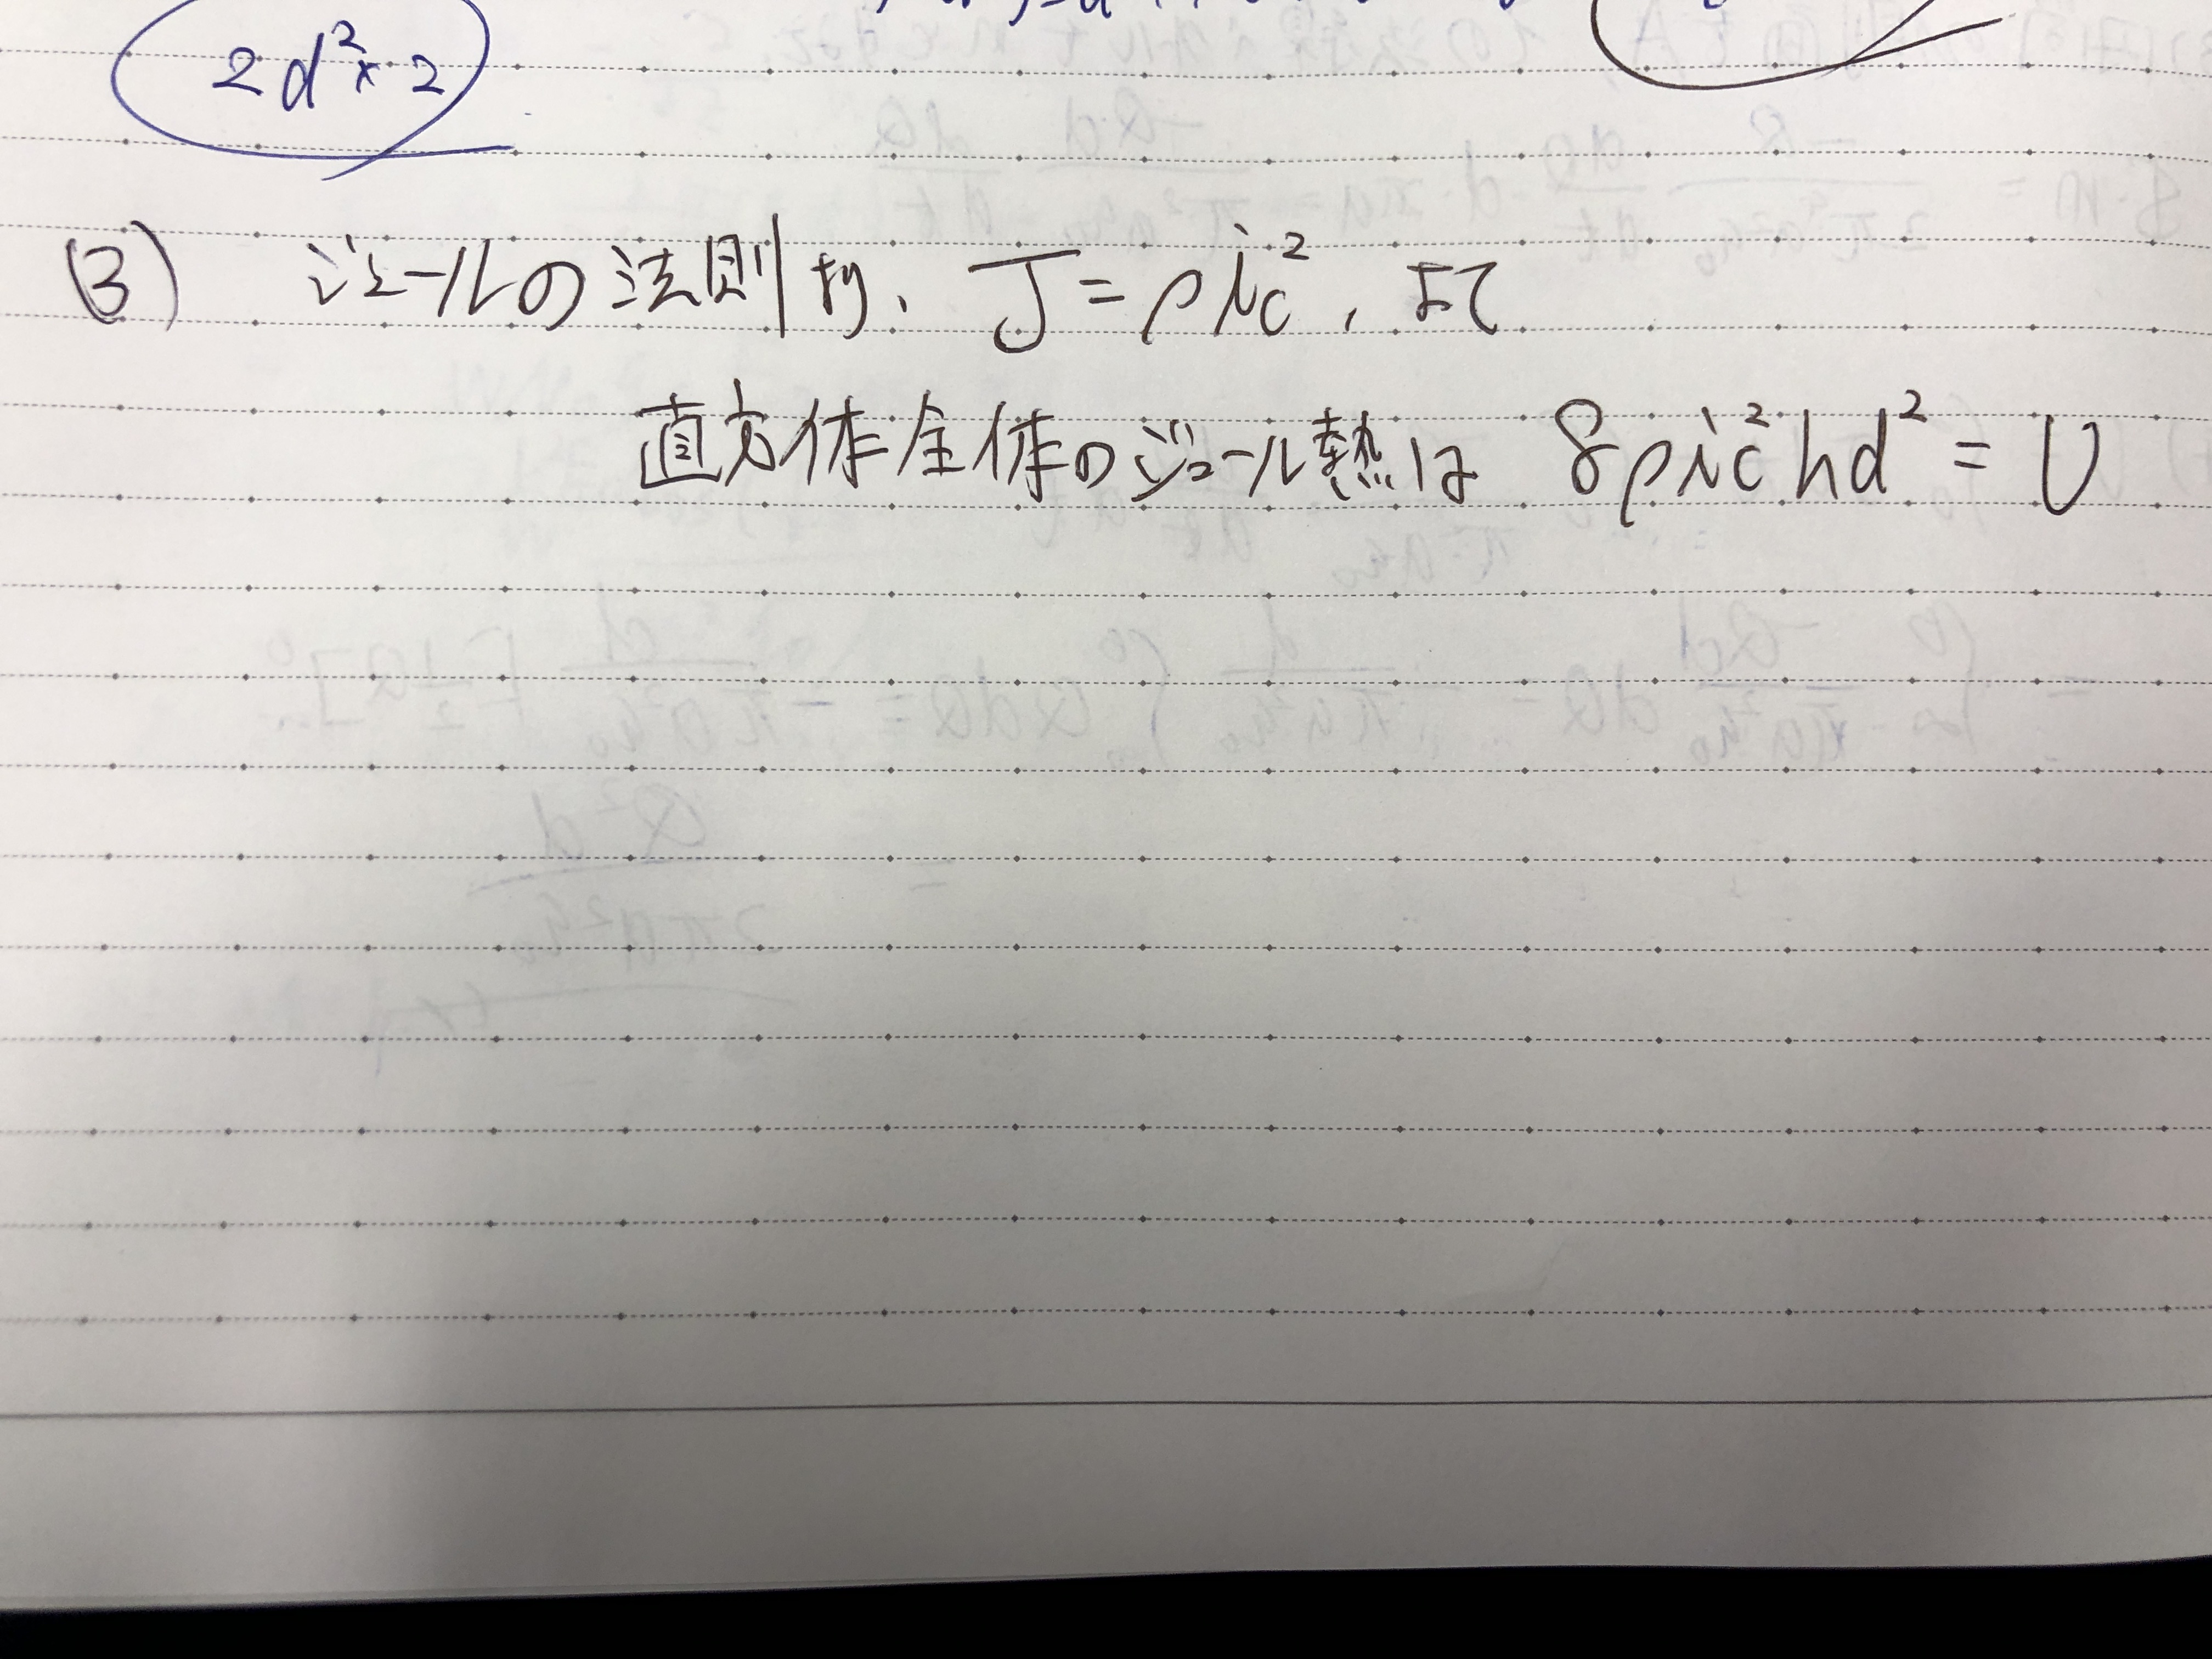 2d²×2
(3) ジュールの法則より、J=ρic²，よって
直方体全体のジュール熱は 8ρic²hd² = U